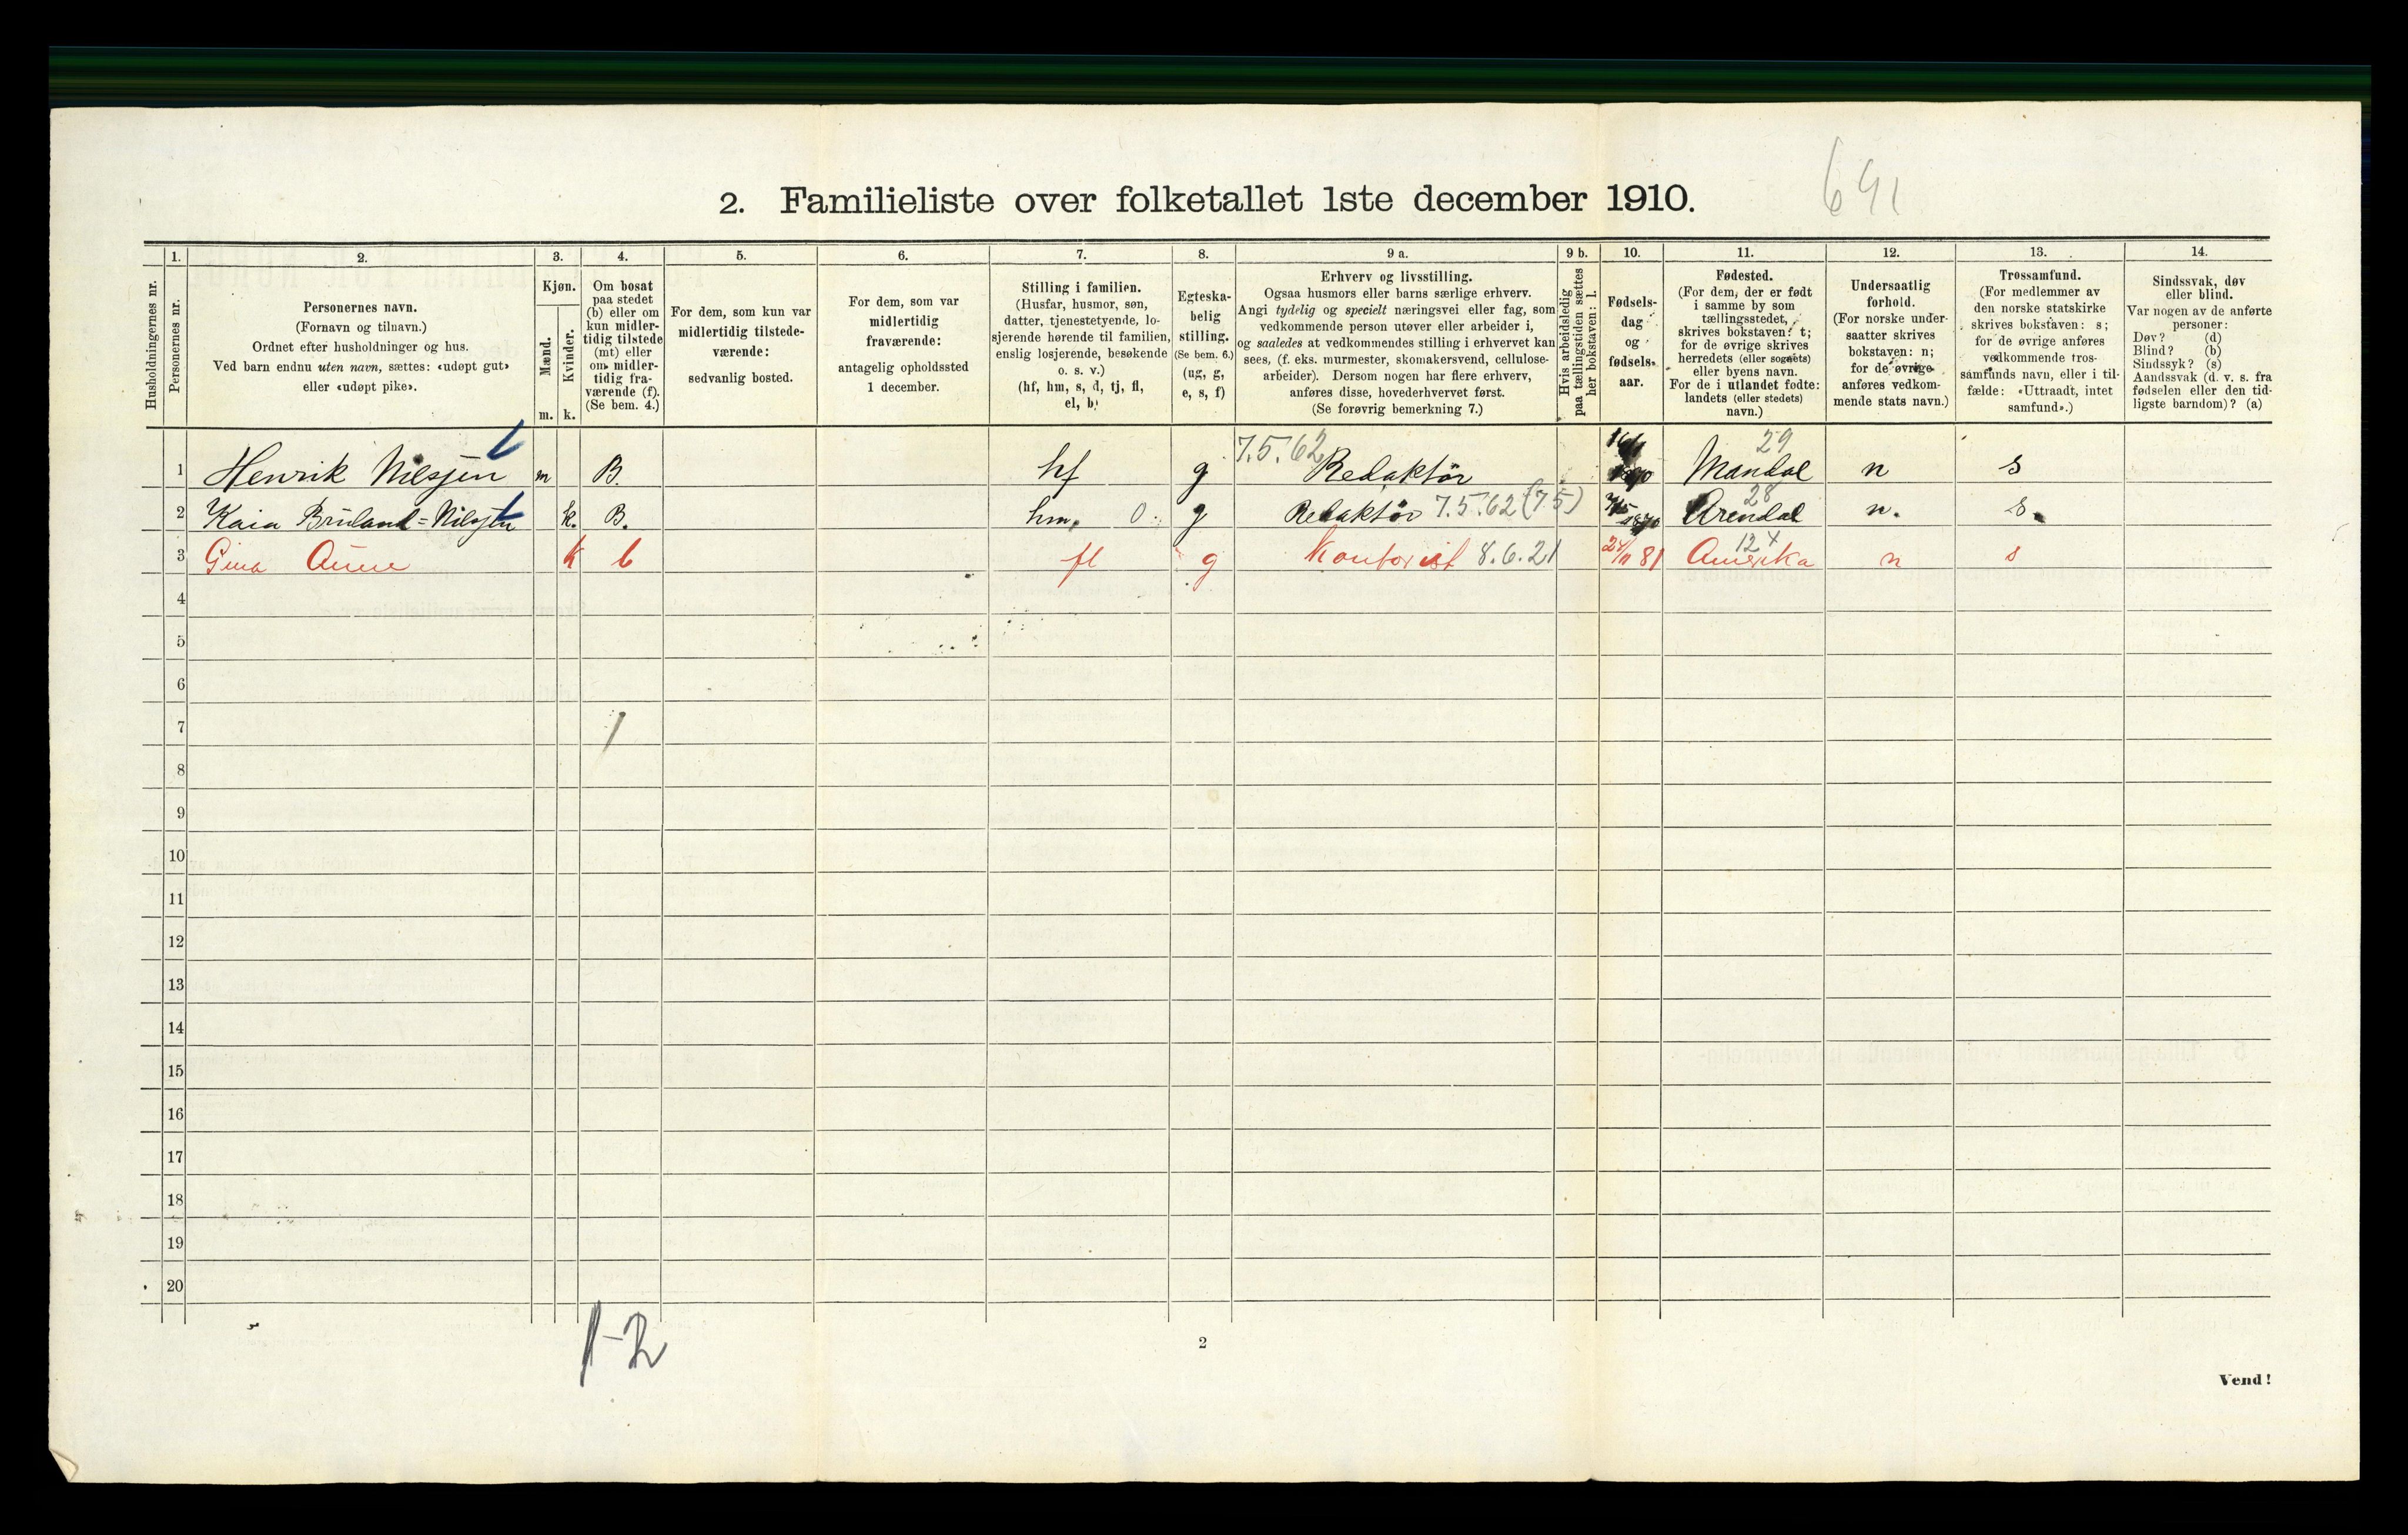 2. Familieliste over folketallet 1ste december 1910.
641
Husholdningernes nr.
1.
Personernes nr.
2.
Personernes navn.
(Fornavn og tilnavn.)
Ordnet efter husholdninger og hus.
Ved barn endnu uten navn, sættes: «udøpt gut»
eller «udøpt pike».
3.
Kjøn.
Mænd.
Kvinder.
m. k.
4.
Om bosat
paa stedet
(b) eller om
kun midler-
tidig tilstede
(mt) eller
om midler-
tidig fra-
værende (f).
(Se bem. 4.)
5.
For dem, som kun var
midlertidig tilstede-
værende:
sedvanlig bosted.
6.
For dem, som var
midlertidig
fraværende:
antagelig opholdssted
1 december.
7.
Stilling i familien.
(Husfar, husmor, søn,
datter, tjenestetyende, lo-
sjerende hørende til familien,
enslig losjerende, besøkende
o. s. v.)
(hf, hm, s, d, tj, fl,
el, b)
8.
Egteska-
belig
stilling.
(Se bem. 6.)
(ug, g,
e, s, f)
9 a.
Erhverv og livsstilling.
Ogsaa husmors eller barns særlige erhverv.
Angi tydelig og specielt næringsvei eller fag, som
vedkommende person utøver eller arbeider i,
og saaledes at vedkommendes stilling i erhvervet kan
sees, (f. eks. murmester, skomakersvend, cellulose-
arbeider). Dersom nogen har flere erhverv,
anføres disse, hovederhvervet først.
(Se forøvrig bemerkning 7.)
9 b.
Hvis arbeidsledig
paa tællingstiden sættes
her bokstaven: l.
10.
Fødsels-
dag
og
fødsels-
aar.
11.
Fødested.
(For dem, der er født
i samme by som
tællingsstedet,
skrives bokstaven: t;
for de øvrige skrives
herredets (eller sognets)
eller byens navn.
For de i utlandet fødte:
landets (eller stedets)
navn.)
12.
Undersaatlig
forhold.
(For norske under-
saatter skrives
bokstaven: n;
for de øvrige
anføres vedkom-
mende stats navn.)
13.
Trossamfund.
(For medlemmer av
den norske statskirke
skrives bokstaven: s;
for de øvrige anføres
vedkommende tros-
samfunds navn, eller i til-
fælde: «Uttraadt, intet
samfund».)
14.
Sindssvak, døv
eller blind.
Var nogen av de anførte
personer:
Døv? (d)
Blind? (b)
Sindssyk? (s)
Aandssvak (d. v. s. fra
fødselen eller den tid-
ligste barndom)? (a)
1 Henrik Nilssen m B. hf g 7.5.62 Redaktør 29 Mandal n s
2 Kaia Bruland=Nilssen k. B. hm. 0 g Redaktør 7.5.62 (75) 1870 28 Arendal n. s.
3 Gina Aune k b fl g Kontorist 8.6.21 24/11 81 124 Amerika n s
4
5
6
7
8
9
10
11
12
13
14
15
16
17
18
19
20
1-2
2
Vend!